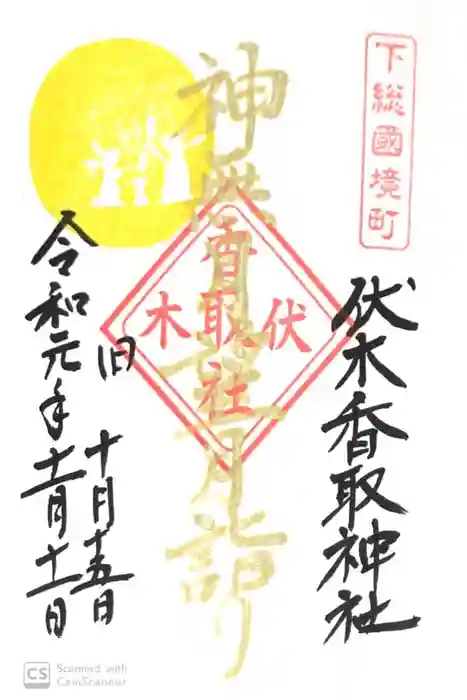 下総國境町
伏木香取神社
神無月月詣り
伏木
香取社
旧 十月十五日
令和元年十一月十一日
CS Scanned with
CamScanner